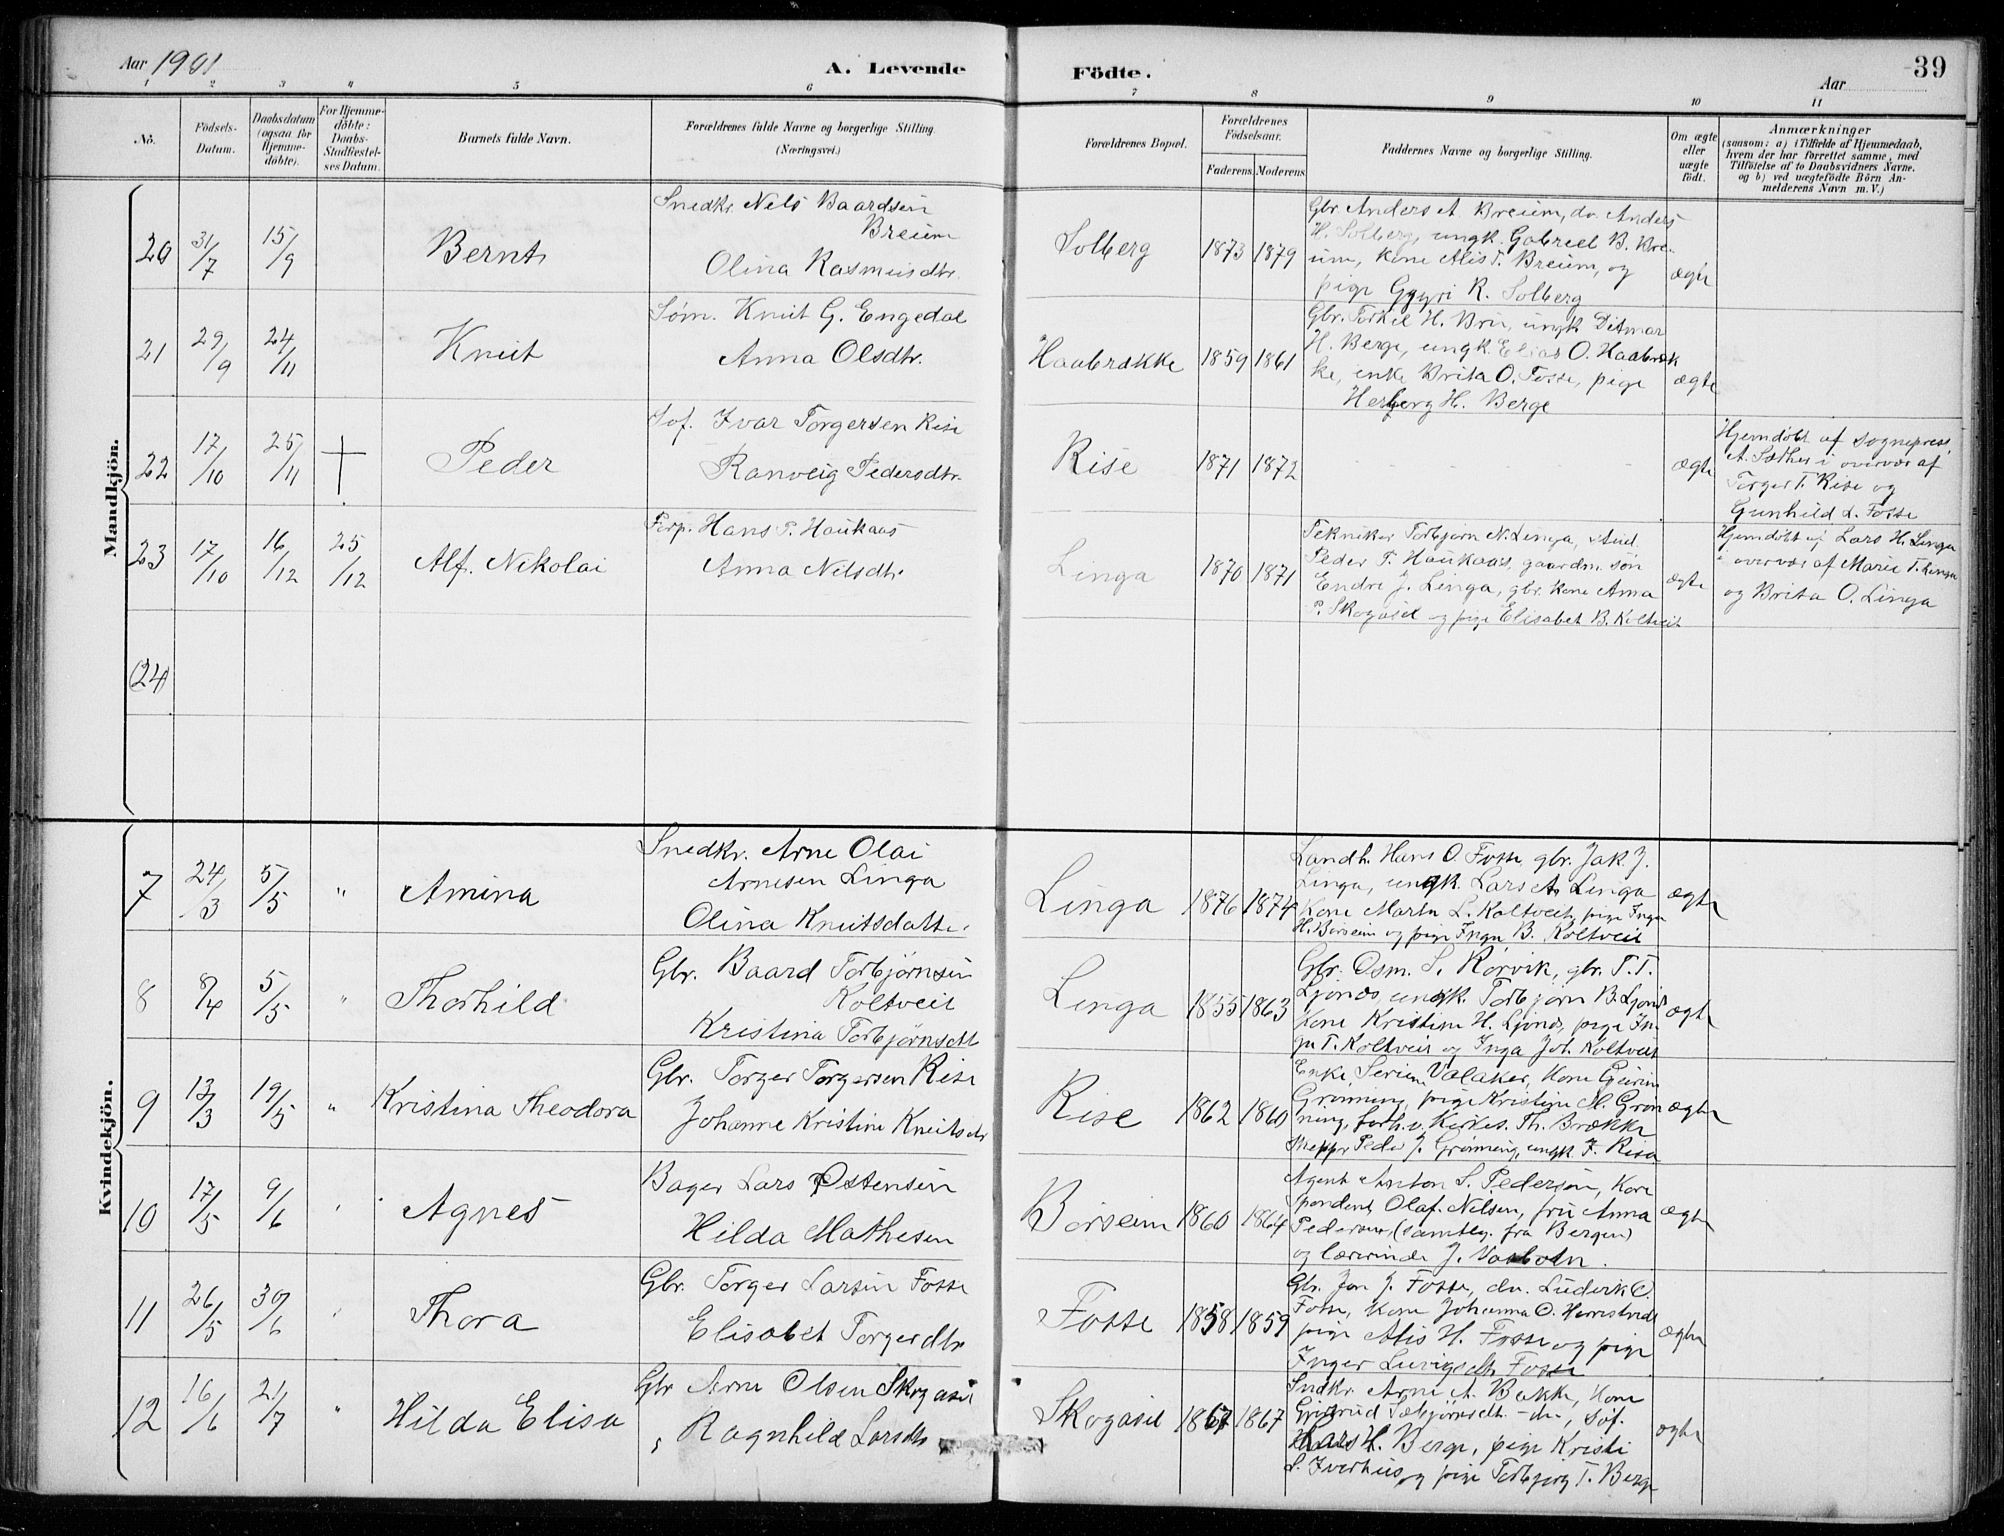 Aar 1901
A. Levende
Födte.
Aar
39
1 2 3 4 5 6 7 8 9 10 11
No.
Födsels-
Datum.
Daabsdatum
(ogsaa for
Hjemme-
döbte).
For Hjemme-
döbte:
Daabs-
Stadfæstel-
ses Datum.
Barnets fulde Navn.
Forældrenes fulde Navne og borgerlige Stilling.
(Næringsvei.)
Forældrenes Bopæl.
Forældrenes
Födselsaar.
Faderens Moderens
Faddernes Navne og borgerlige Stilling.
Om ægte
eller
uægte
födt.
Anmærkninger
(saasom: a) i Tilfælde af Hjemmedaab,
hvem der har forrettet samme, med
Tilföielse af to Daabsvidners Navne.
og b) ved uægtefödte Börn An-
melderens Navn m. V.)
Mandkjön.
20 31/7 15/9
Bernt
Snedkr. Nels Baardsen
Breium
Olina Rasmusdtr.
Solberg 1873 1879
Gbr. Anders A. Breium, do. Anders
H. Solberg, ungk. Gabriel B. Bre-
ium, kone Alis T. Breium, og
pige Gyri R. Solberg
ægte
21 29/9 24/11
Knut
Søm. Knut G. Engedal
Anna Olsdtr.
Haabrække 1859 1861
Gbr. Torkel H. Bru, ungk Ditmar
H. Berge, ungk. Elias O. Haabræk
ke, enke Brita O. Fosse, pige
Herborg H. Berge
ægte
22 17/10 25/11 †
Peder
Sof. Ivar Torgersen Rise
Ranveig Pedersdtr.
Rise 1871 1872
ægte
Hjemdøbt af sognepræst
A. Sæther i overvær af
Torger T. Rise og
Gunhild L. Fosse
23 17/10 16/12 25/12
Alf. Nikolai
Hans P. Haukaas
Anna Nilsdtr.
Linga 1870 1871
Tekniker Torbjørn N. Linga, stud.
Peder T. Haukaas, gaardm. søn
Endre J. Linga, gbr. kone Anna
P. Skogasel og pige Elisabet B. Koltveit
ægte
Hjemdøbt af Lars H. Linga
i overvær af Marie T. Linga
og Brita O. Linga
(24)
Kvindekjön.
7 24/3 5/5 "
Amina
Snedkr. Arne Olai
Arnesen Linga
Olina Knutsdatter
Linga 1876 1874
Landh. Hans O. Fosse, gbr. Jak J.
Linga, ungk. Lars A. Linga
Kone Marta L. Koltveit, pige Inga
H. Børseim og pige Inga B. Koltveit
ægte
8 8/4 5/5 "
Thorhild
Gbr. Baard Torbjørnsen
Koltveit
Kristina Torbjørnsdtr
Linga 1855 1863
Gbr. Osm. S. Rørvik, gbr. T. T.
Ljonds, ungk. Torbjørn B. Ljonds
Kone Kristine H. Ljonds, pige In-
ga T. Koltveit og Inga Joh. Koltveit
ægte
9 13/3 19/5 "
Kristina Theodora
Gbr. Torger Torgersen Rise
Johanne Kristine Knutsdtr
Rise 1862 1860
Enke Valaker, Kone Guirin
Grønning, pige Kristine M. Grøn
ning, forh.v. Kirkes. Th. Brække
Peder J. Grønning, ungk. J. Risa
ægte
10 17/5 9/6 "
Agnes
Bager Lars Østensen
Hilda Mathesen
Børseim 1860 1864
Agent Anton S. Pedersen, Kore
pondent Olaf Nilsen, fru Anna
Pedersen, (samtlg. fra Bergen)
og lærerinde J. Vasbotn.
ægte
11 26/5 30/6 "
Thora
Gbr. Torger Larsen Fosse
Elisabet Torgerdtr
Fosse 1858 1859
Gbr. Jon J. Fosse, do. Ludvik O.
Fosse, Kone Johanna O. Herrestvedt
pige Alis H. Fosse og pige
Inger Luvigsdtr. Fosse
ægte
12 16/6 21/7 "
Hilda Elisa
Gbr Arne Olsen Skogasel
Ragnhild Larsdtr
Skogasel 1867 1867
Snedkr. Arne A. Bakke, Kone
Torbjørnsdtr. - do, Sof.
Lars H. Berge, pige Kristi
S. Iverhus og pige Torbjørg T. Berge
ægte